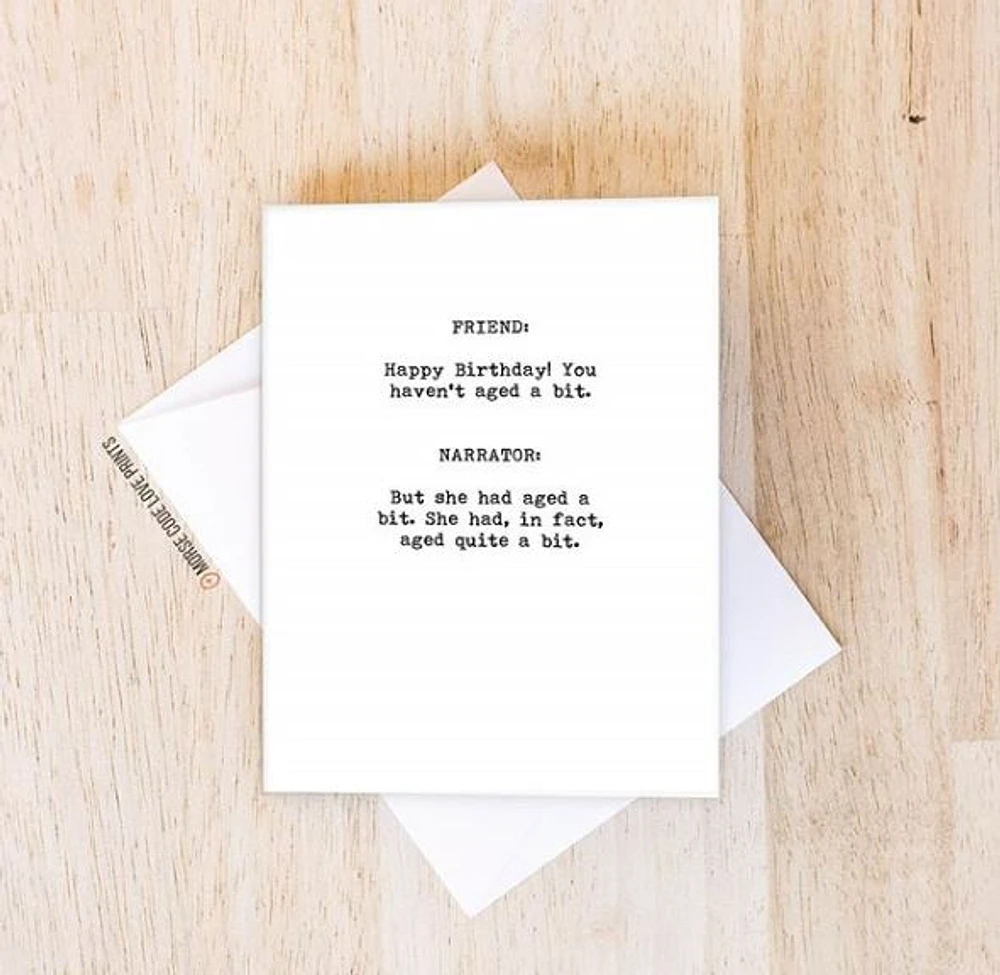 FRIEND:
Happy Birthday! You
haven't aged a bit.
NARRATOR:
But she had aged a
bit. She had, in fact,
aged quite a bit.
MORSE CODE LOVE PRINTS